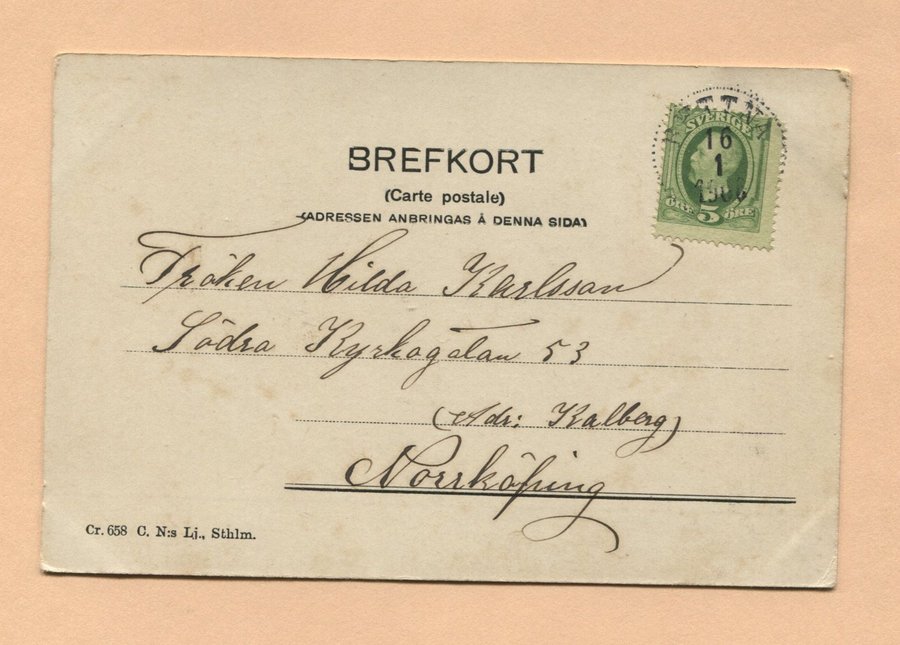 BREFKORT
(Carte postale)
(ADRESSEN ANBRINGAS Å DENNA SIDA)
SVERIGE
16
1
5
ÖRE ÖRE
Fröken Hilda Karlsson
Södra Kyrkogatan 53
(Adr: Kalberg)
Norrköping
Cr. 658 C. N:s Lj., Sthlm.